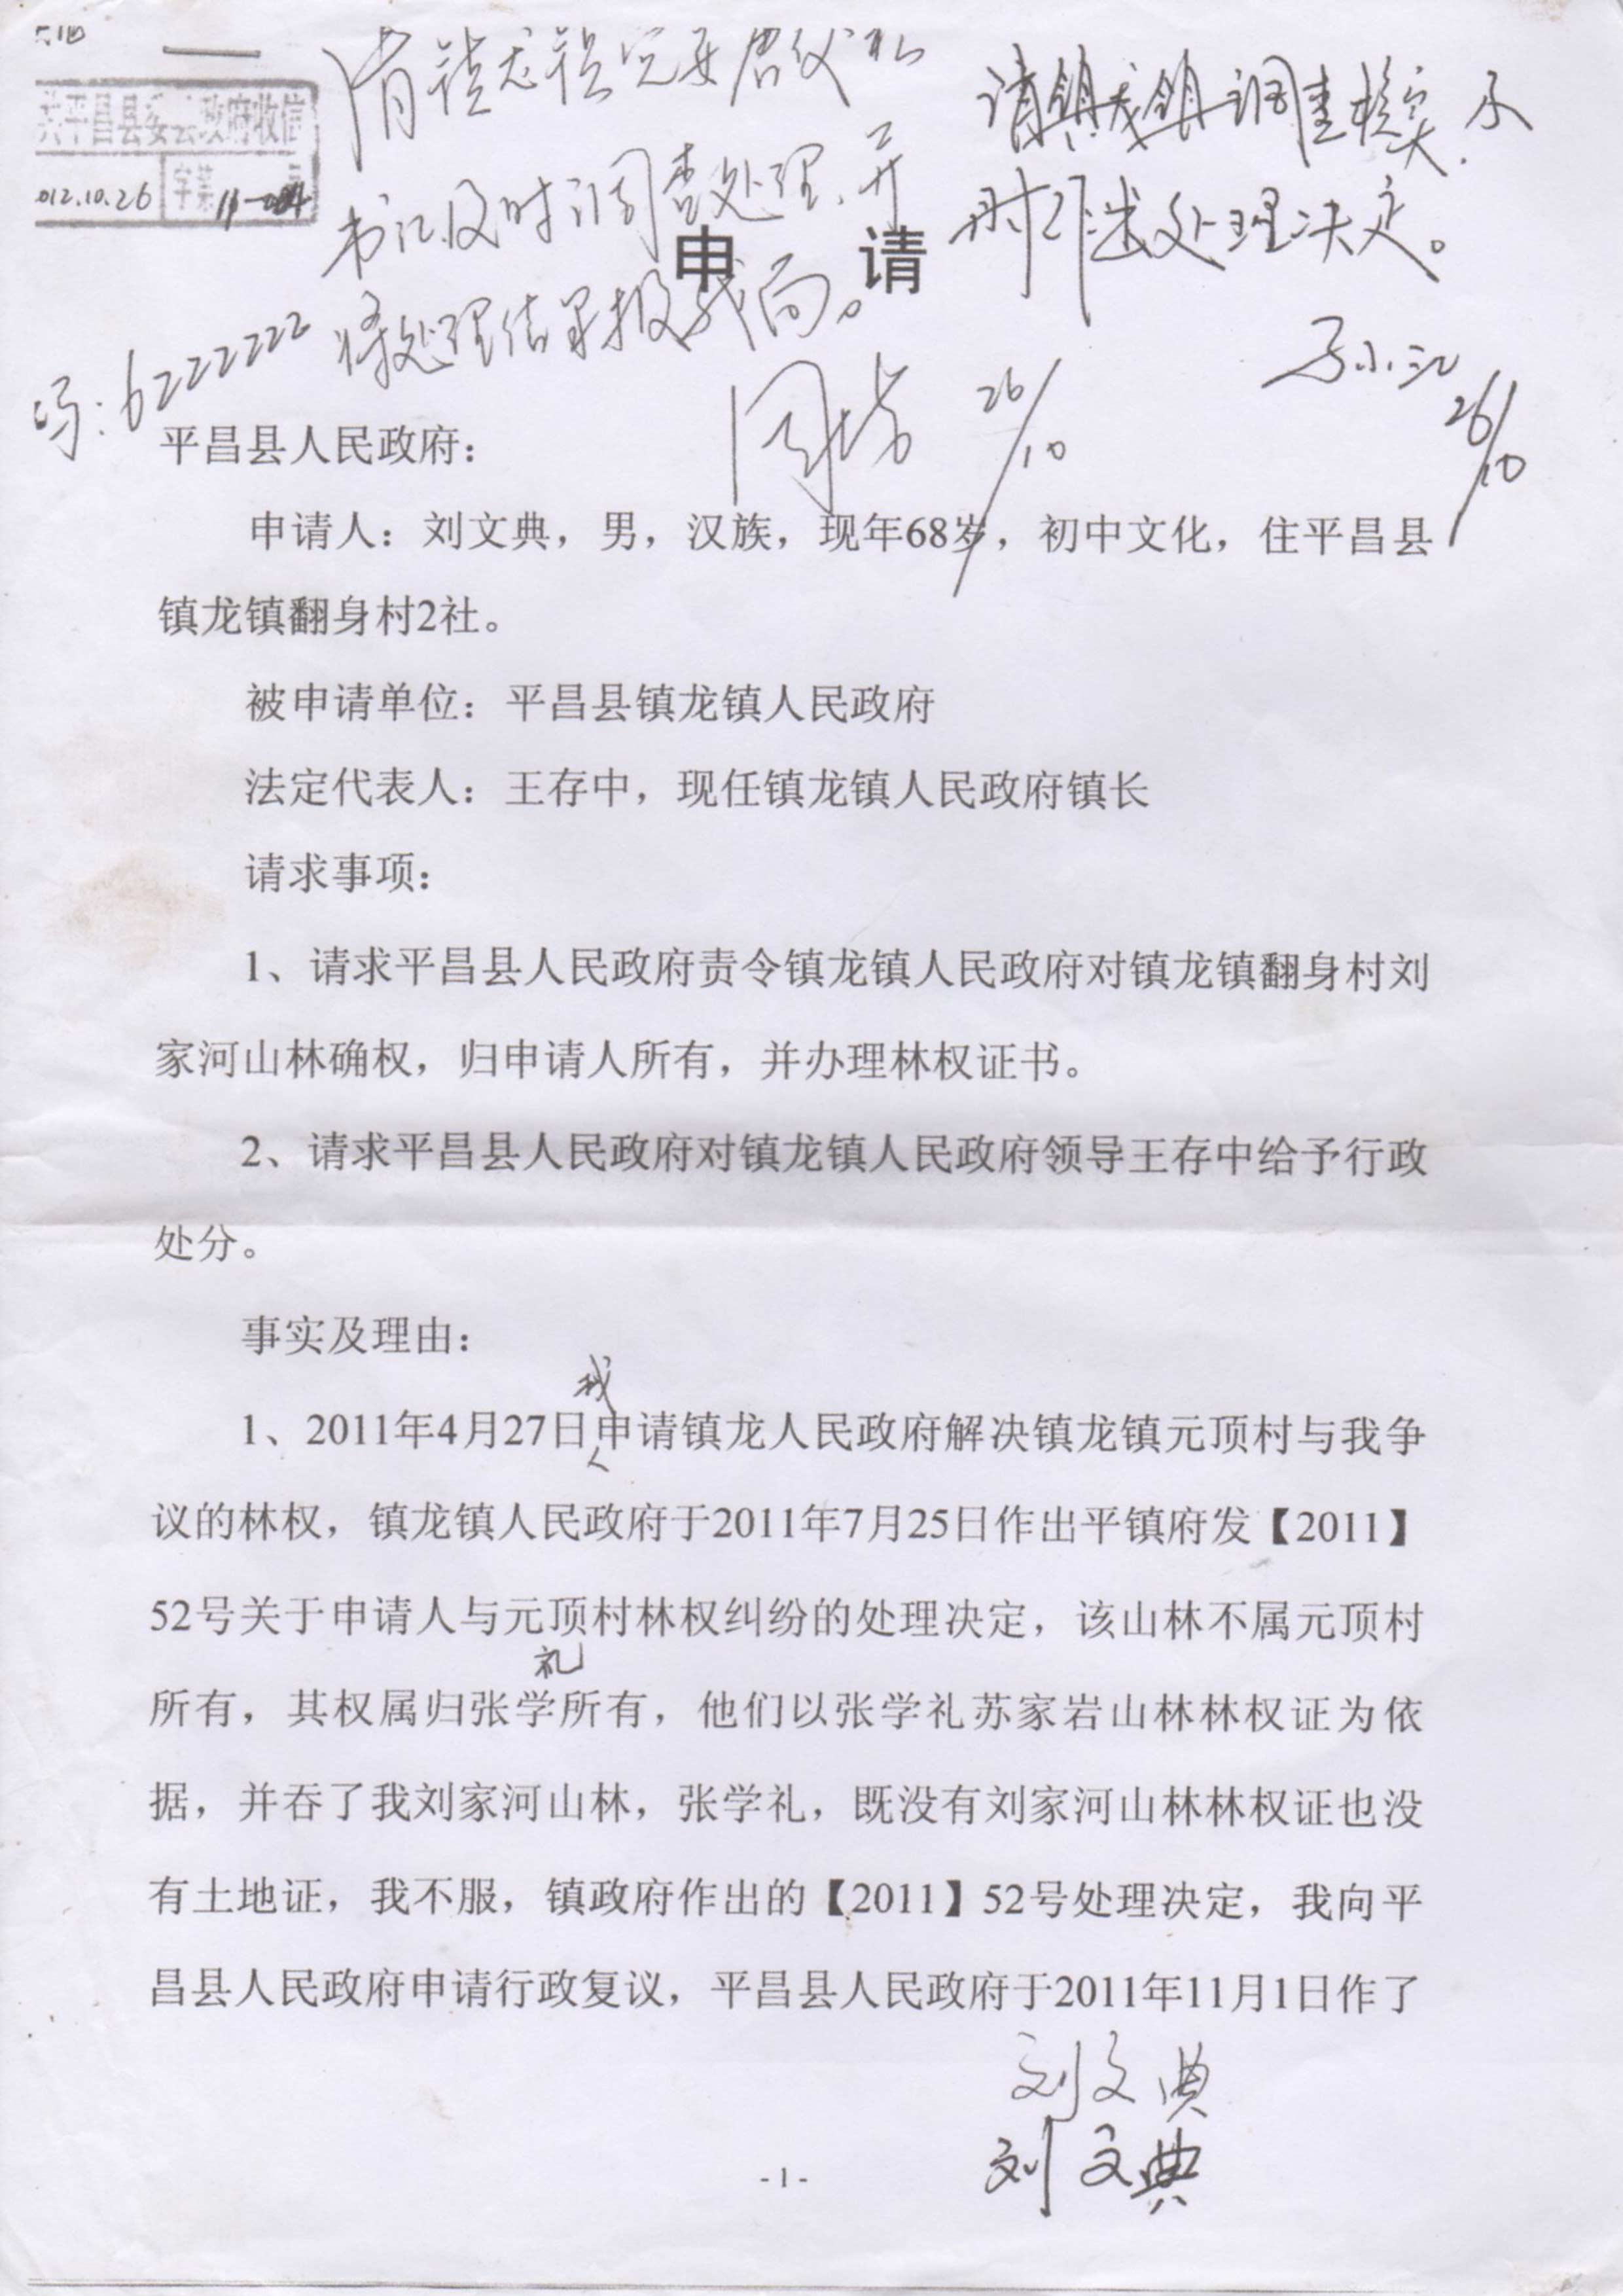 共平昌县委县政府收信
012.10.26
字第
号
请镇龙镇党委
书记及时调查处理,并
将处理结果报我们。
26/10
请镇龙镇调查核实,及
时作出处理决定。
26/10
号:6222222
申 请
平昌县人民政府:
申请人:刘文典,男,汉族,现年68岁,初中文化,住平昌县
镇龙镇翻身村2社。
被申请单位:平昌县镇龙镇人民政府
法定代表人:王存中,现任镇龙镇人民政府镇长
请求事项:
1、请求平昌县人民政府责令镇龙镇人民政府对镇龙镇翻身村刘
家河山林确权,归申请人所有,并办理林权证书。
2、请求平昌县人民政府对镇龙镇人民政府领导王存中给予行政
处分。
事实及理由:
1、2011年4月27日我申请镇龙人民政府解决镇龙镇元顶村与我争
议的林权,镇龙镇人民政府于2011年7月25日作出平镇府发【2011】
52号关于申请人与元顶村林权纠纷的处理决定,该山林不属元顶村
所有,其权属归张学礼所有,他们以张学礼苏家岩山林林权证为依
据,并吞了我刘家河山林,张学礼,既没有刘家河山林林权证也没
有土地证,我不服,镇政府作出的【2011】52号处理决定,我向平
昌县人民政府申请行政复议,平昌县人民政府于2011年11月1日作了
刘文典
刘文典
- 1 -